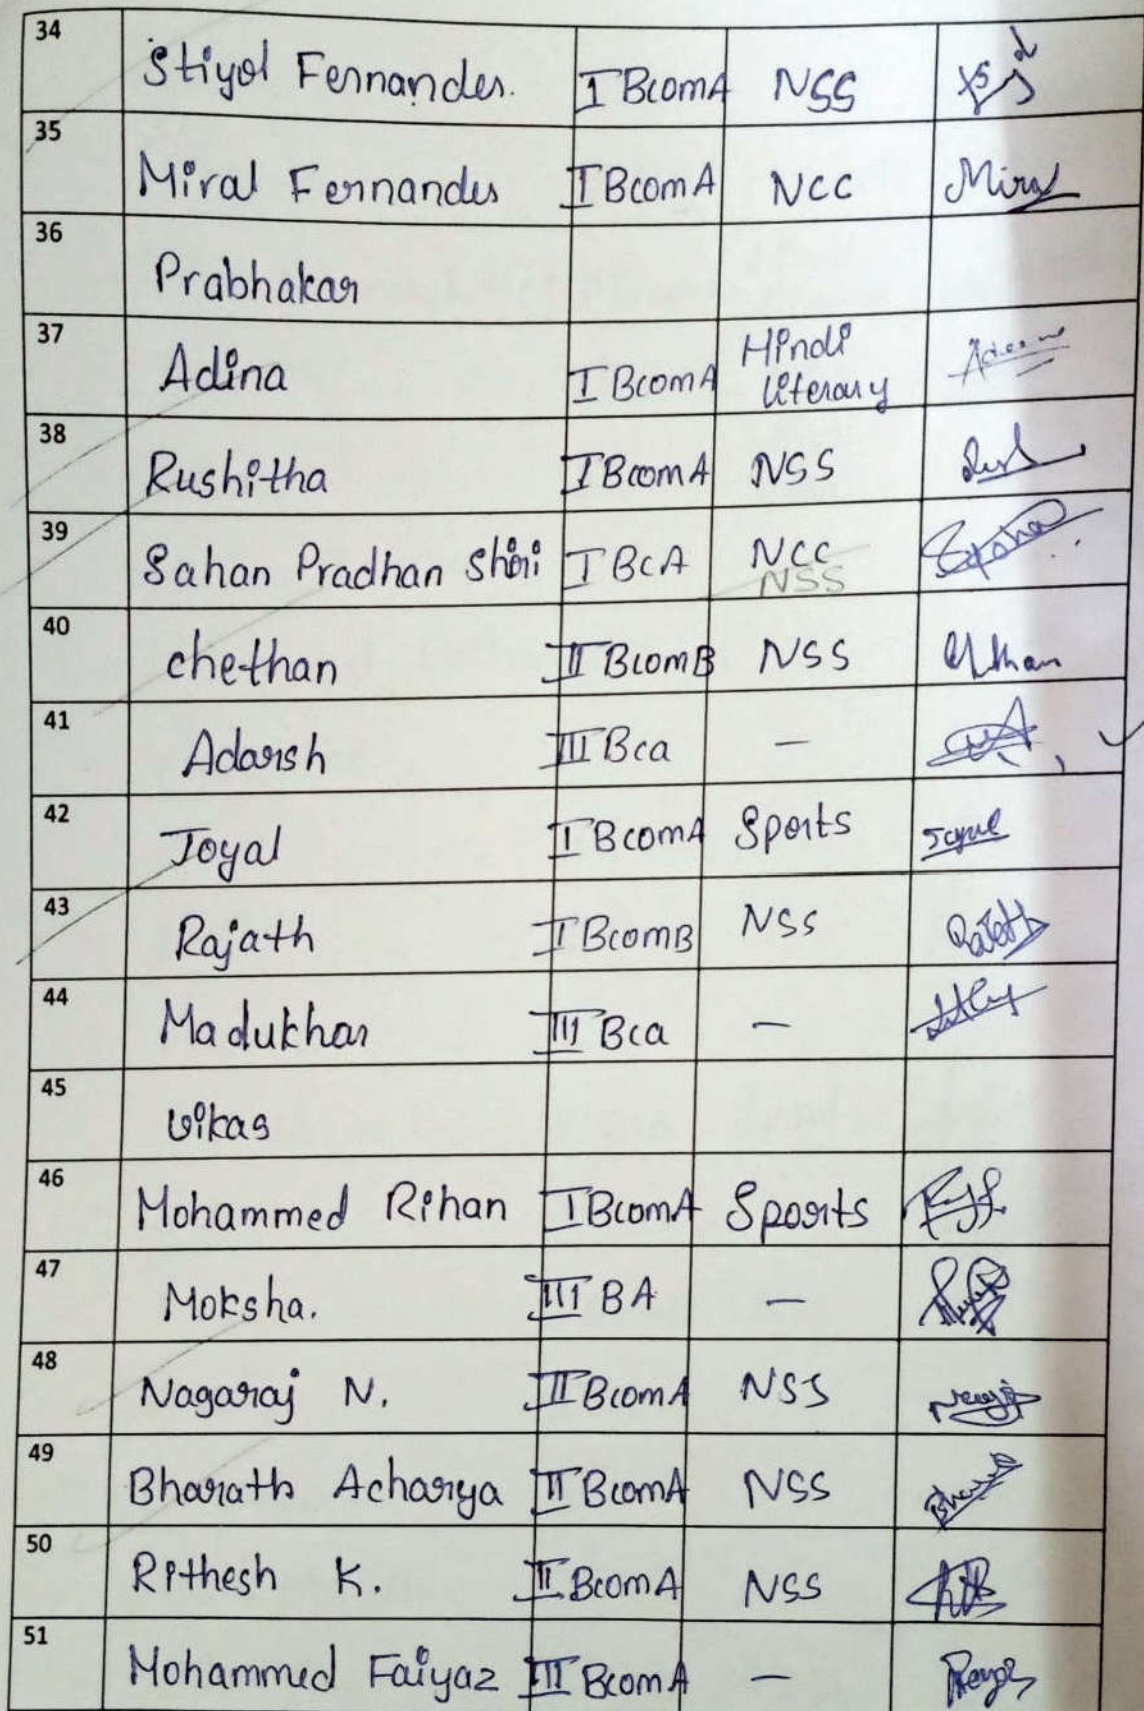 34 Stiyol Fernandes. I BcomA NSS
35 Miral Fernandes I BcomA NCC Miral
36 Prabhakar
37 Adina I BcomA Hindi
literary
38 Rushitha I BcomA NSS
39 Sahan Pradhan Shiri I BCA NCC
NSS
40 chethan II BcomB NSS
41 Adarsh III Bca —
42 Joyal I BcomA Sports Joyal
43 Rajath I BcomB NSS
44 Madukhar III Bca —
45 Vikas
46 Mohammed Rihan I BcomA Sports
47 Moksha. III BA —
48 Nagaraj N. II BcomA NSS
49 Bharath Acharya II BcomA NSS
50 Rithesh K. II BcomA NSS
51 Mohammed Faiyaz III BcomA —